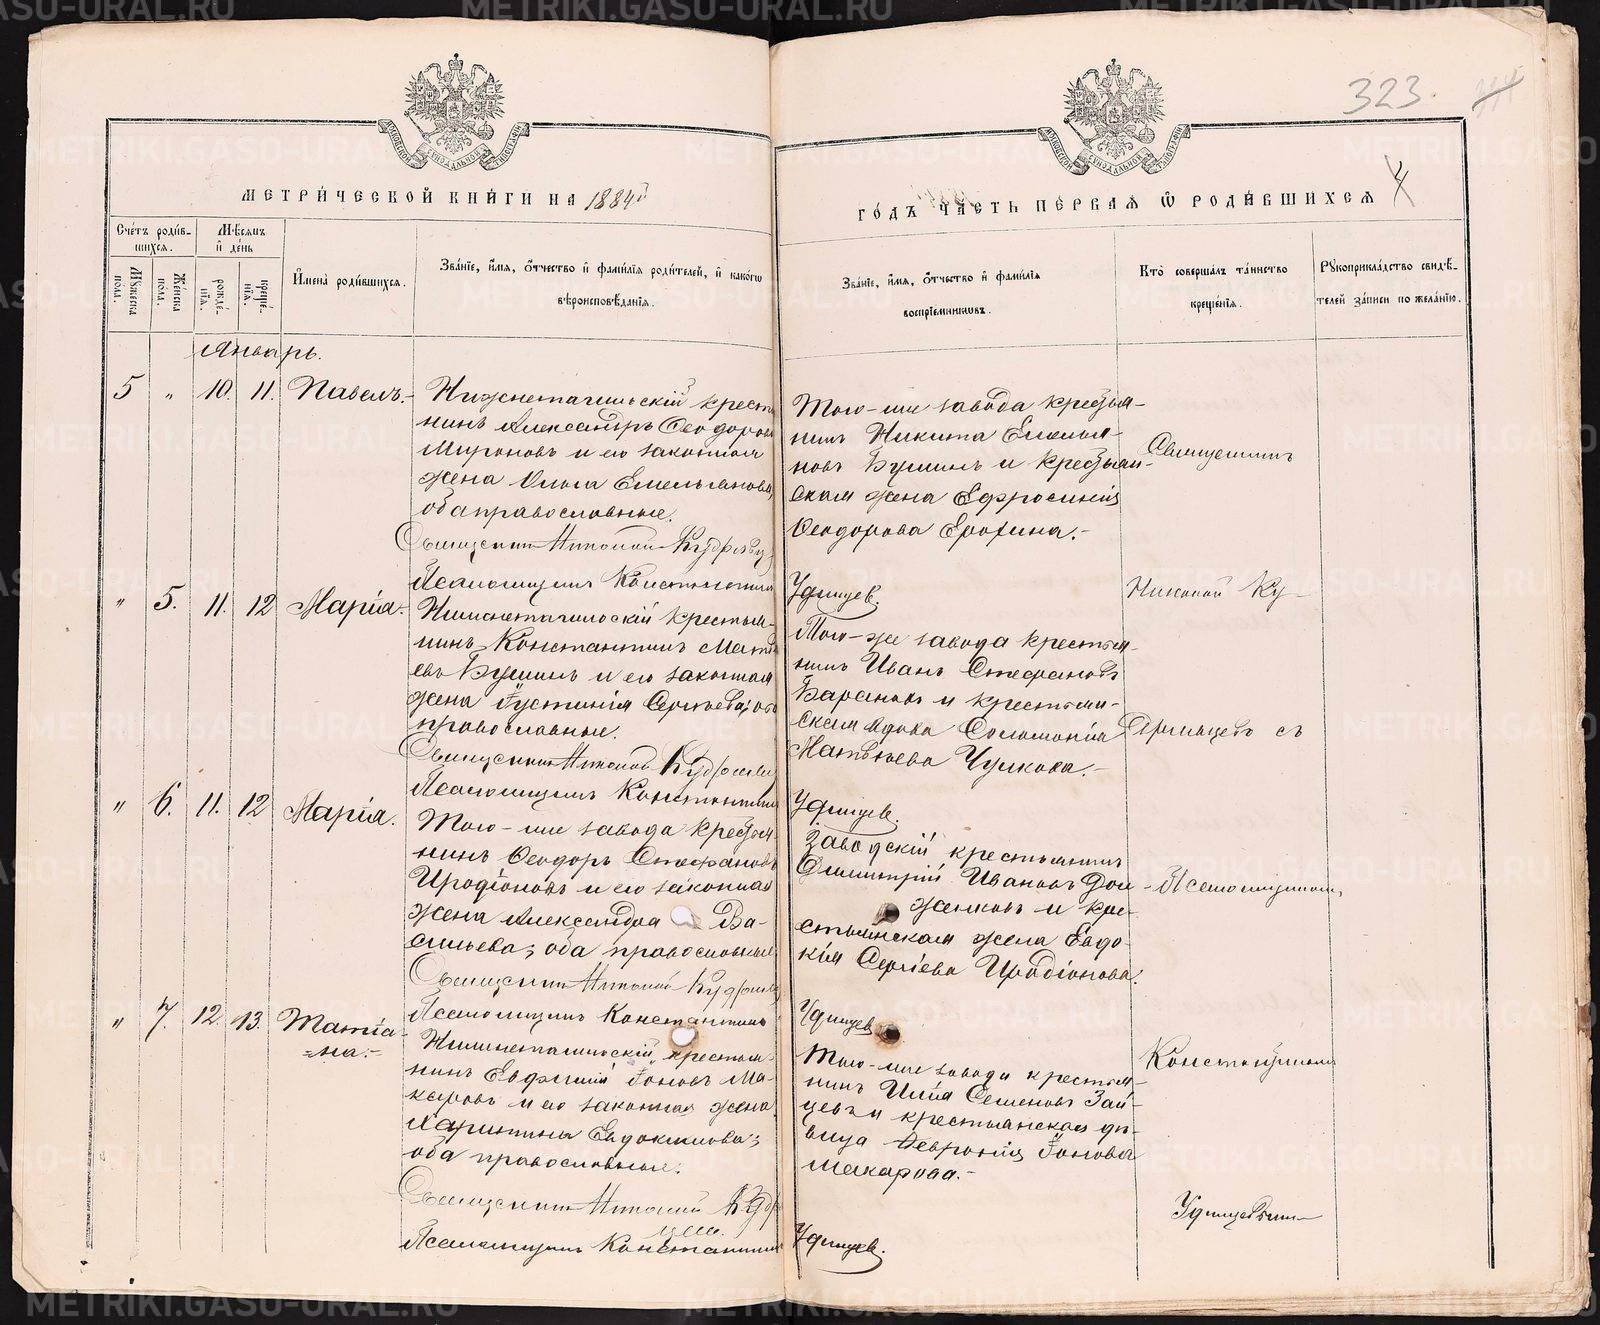 323.
МЕТРИЧЕСКОЙ КНИГИ НА 1884й
ГОДЪ ЧАСТЬ ПЕРВАЯ Ѡ РОДИВШИХСЯ
4
Счетъ родив-
шихся.
Мѣсяцъ
и день
Имена родившихся.
Званіе, имя, отчество и фамилія родителей, и какогω
вѣроисповѣданія.
Мужеска
пола.
Женска
пола.
рожде-
нія.
креще-
нія.
Званіе, имя, отчество и фамилія
воспріемникωвъ.
Кто совершалъ таинство
крещенія.
Рукоприкладство свидѣ-
телей записи по желанію.
Январь.
5 „ 10. 11. Павелъ.-
Нижнетагильскій кресть
нинъ Александръ Ѳеодоровъ
Мироновъ и его законная
жена Ольга Емельянова,
оба православные.
Священникъ Николай Кудрявц
Псаломщикъ Константинъ
Того-же завода крестья-
нинъ Никита Емелья-
новъ Бушинъ и крестьян-
ская жена Ефросинія
Ѳеодорова Ерохина.-
Удинцев.
Священникъ
„ 5. 11. 12 Марія.-
Нижнетагильскій крестья-
нинъ Константинъ Матв
евъ Бушинъ и его законная
жена Іустинія Сергѣева, оба
православные.
Священникъ Николай Кудрявц
Псаломщикъ Константинъ
Того-же завода крестья-
нинъ Иванъ Стефановъ
Барановъ и крестьян-
ская вдова Соломонія
Матвѣева Чулкова.-
Удинцев.
Николай Ку-
дрявцевъ съ
„ 6. 11. 12 Марія.
Того-же завода крестья-
нинъ Ѳеодоръ Стефановъ
Иродіоновъ и его законная
жена Александра Ва-
сильева, оба православные
Священникъ Николай Кудрявц
Псаломщикъ Константинъ
Заводскій крестьянинъ
Димитрій Ивановъ Дол-
женковъ и кре-
стьянская жена Евдо-
кія Сергіева Иродіонова.
Удинцев
Псаломщикомъ
„ 7. 12. 13. Татіа-
=на.=
Нижнетагильскій крестья-
нинъ Евфимій Іоновъ Ма-
каровъ и его законная жена
Харитина Евдокимова;
оба православные.
Священникъ Николай Кудр
цев.
Псаломщикъ Константинъ
Того-же завода крестья-
нинъ Илія Семеновъ Зай-
цевъ и крестьянская дѣ-
вица Ѳевронія Іонова
Макарова.-
Удинцев.
Константиномъ
Удинцевымъ